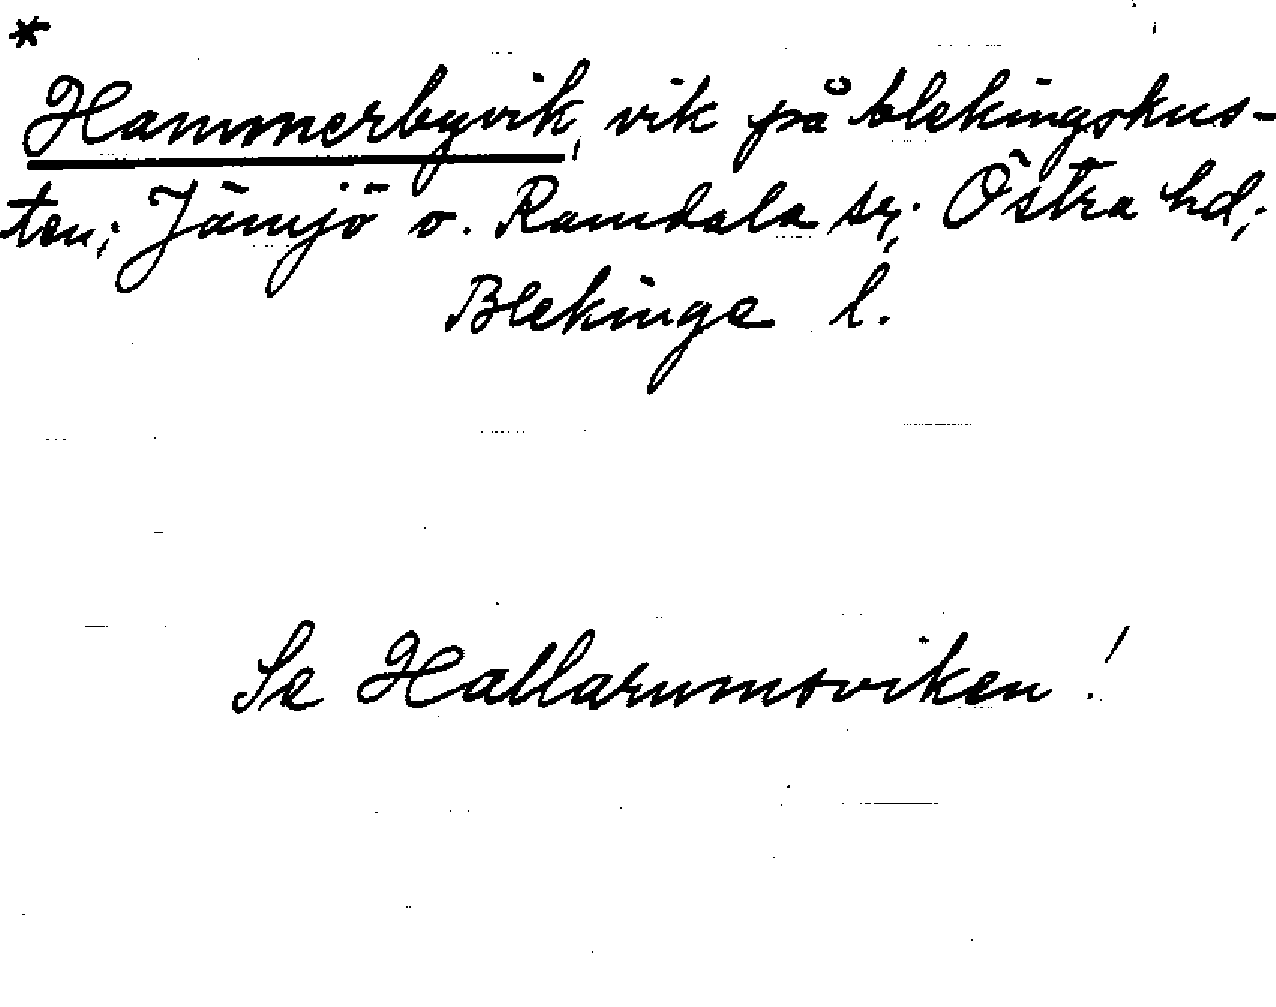 *
Hammerbyvik, vik på blekingskus-
ten; Jämjö o. Ramdala sr, Östra hd,
Blekinge l.
Se Hallarumsviken!